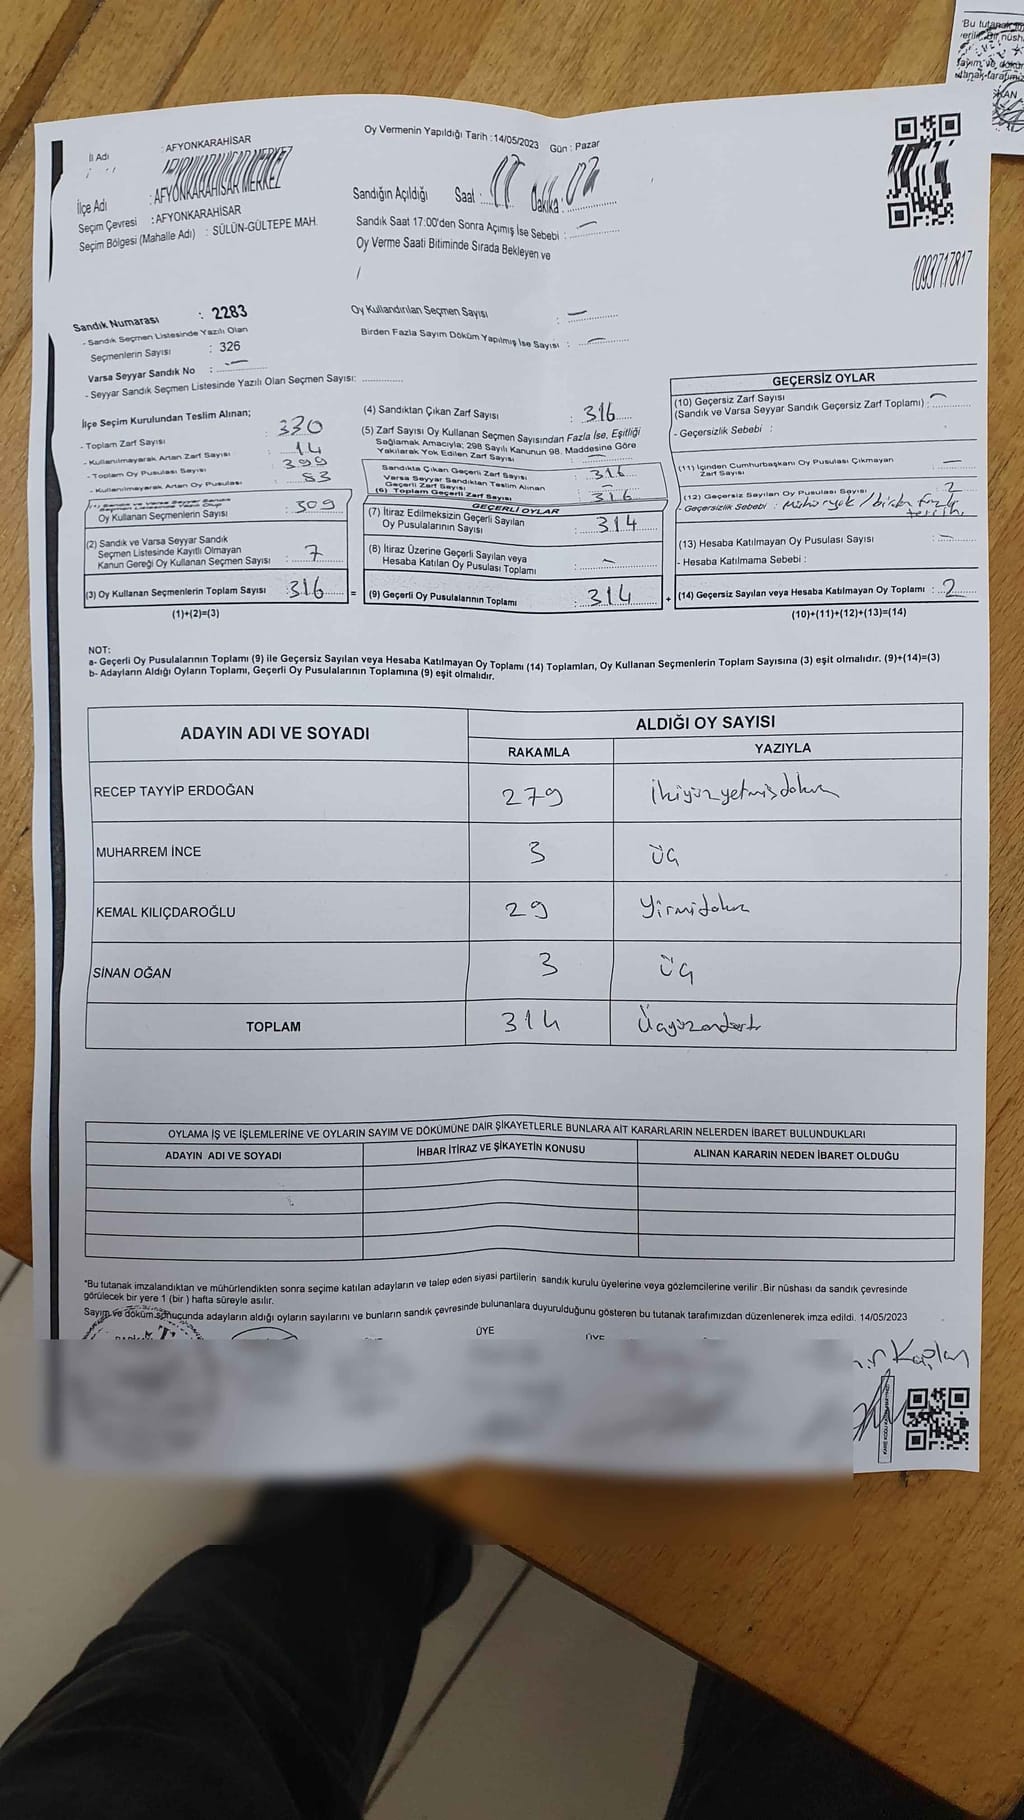 'Bu tutanak
İl Adı : AFYONKARAHİSAR
Oy Vermenin Yapıldığı Tarih :14/05/2023 Gün : Pazar
İlçe Adı : AFYONKARAHİSAR MERKEZ
Seçim Çevresi : AFYONKARAHİSAR
Seçim Bölgesi (Mahalle Adı) : SÜLÜN-GÜLTEPE MAH.
Sandığın Açıldığı Saat : 17 Dakika: 02
Sandık Saat 17:00'den Sonra Açımış İse Sebebi : —
Oy Verme Saati Bitiminde Sırada Bekleyen ve
/
1093717817
Oy Kullandırılan Seçmen Sayısı : —
Birden Fazla Sayım Döküm Yapılmış İse Sayısı : —
Sandık Numarası : 2283
- Sandık Seçmen Listesinde Yazılı Olan
Seçmenlerin Sayısı : 326
Varsa Seyyar Sandık No : —
- Seyyar Sandık Seçmen Listesinde Yazılı Olan Seçmen Sayısı:
İlçe Seçim Kurulundan Teslim Alınan;
- Toplam Zarf Sayısı : 330
- Kullanılmayarak Artan Zarf Sayısı : 14
- Toplam Oy Pusulası Sayısı : 399
- Kullanılmayarak Artan Oy Pusulası : 83
Oy Kullanan Seçmenlerin Sayısı : 309
(2) Sandık ve Varsa Seyyar Sandık
Seçmen Listesinde Kayıtlı Olmayan
Kanun Gereği Oy Kullanan Seçmen Sayısı : 7
(3) Oy Kullanan Seçmenlerin Toplam Sayısı : 316 =
(1)+(2)=(3)
(4) Sandıktan Çıkan Zarf Sayısı : 316
(5) Zarf Sayısı Oy Kullanan Seçmen Sayısından Fazla İse, Eşitliği
Sağlamak Amacıyla; 298 Sayılı Kanunun 98. Maddesine Göre
Yakılarak Yok Edilen Zarf Sayısı : —
Sandıkta Çıkan Geçerli Zarf Sayısı : 316
Varsa Seyyar Sandıktan Teslim Alınan
Geçerli Zarf Sayısı : —
(6) Toplam Geçerli Zarf Sayısı : 316
GEÇERLİ OYLAR
(7) İtiraz Edilmeksizin Geçerli Sayılan
Oy Pusulalarının Sayısı : 314
(8) İtiraz Üzerine Geçerli Sayılan veya
Hesaba Katılan Oy Pusulası Toplamı : —
(9) Geçerli Oy Pusulalarının Toplamı : 314 +
GEÇERSİZ OYLAR
(10) Geçersiz Zarf Sayısı
(Sandık ve Varsa Seyyar Sandık Geçersiz Zarf Toplamı) : —
- Geçersizlik Sebebi :
(11) İçinden Cumhurbaşkanı Oy Pusulası Çıkmayan
Zarf Sayısı : —
(12) Geçersiz Sayılan Oy Pusulası Sayısı : 2
- Geçersizlik Sebebi : Mühür yok / birden fazla
tercih.
(13) Hesaba Katılmayan Oy Pusulası Sayısı : —
- Hesaba Katılmama Sebebi :
(14) Geçersiz Sayılan veya Hesaba Katılmayan Oy Toplamı : 2
(10)+(11)+(12)+(13)=(14)
NOT:
a- Geçerli Oy Pusulalarının Toplamı (9) ile Geçersiz Sayılan veya Hesaba Katılmayan Oy Toplamı (14) Toplamları, Oy Kullanan Seçmenlerin Toplam Sayısına (3) eşit olmalıdır. (9)+(14)=(3)
b- Adayların Aldığı Oyların Toplamı, Geçerli Oy Pusulalarının Toplamına (9) eşit olmalıdır.
ADAYIN ADI VE SOYADI ALDIĞI OY SAYISI
RAKAMLA YAZIYLA
RECEP TAYYİP ERDOĞAN 279 ikiyüzyetmişdokuz
MUHARREM İNCE 3 üç
KEMAL KILIÇDAROĞLU 29 Yirmidokuz
SİNAN OĞAN 3 üç
TOPLAM 314 Üçyüzondört
OYLAMA İŞ VE İŞLEMLERİNE VE OYLARIN SAYIM VE DÖKÜMÜNE DAİR ŞİKAYETLERLE BUNLARA AİT KARARLARIN NELERDEN İBARET BULUNDUKLARI
ADAYIN ADI VE SOYADI İHBAR İTİRAZ VE ŞİKAYETİN KONUSU ALINAN KARARIN NEDEN İBARET OLDUĞU
"Bu tutanak imzalandıktan ve mühürlendikten sonra seçime katılan adayların ve talep eden siyasi partilerin sandık kurulu üyelerine veya gözlemcilerine verilir .Bir nüshası da sandık çevresinde
görülecek bir yere 1 (bir ) hafta süreyle asılır.
Sayım ve döküm sonucunda adayların aldığı oyların sayılarını ve bunların sandık çevresinde bulunanlara duyurulduğunu gösteren bu tutanak tarafımızdan düzenlenerek imza edildi. 14/05/2023
ÜYE ÜYE
Kaplan